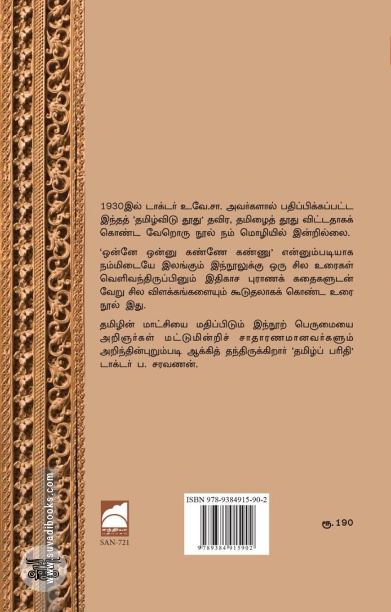 1930இல் டாக்டர் உ.வே.சா. அவர்களால் பதிப்பிக்கப்பட்ட
இந்தத் 'தமிழ்விடு தூது' தவிர, தமிழைத் தூது விட்டதாகக்
கொண்ட வேறொரு நூல் நம் மொழியில் இன்றில்லை.
'ஒன்னே ஒன்னு கண்ணே கண்ணு' என்னும்படியாக
நம்மிடையே இலங்கும் இந்நூலுக்கு ஒரு சில உரைகள்
வெளிவந்திருப்பினும் இதிகாச புராணக் கதைகளுடன்
வேறு சில விளக்கங்களையும் கூடுதலாகக் கொண்ட உரை
நூல் இது.
தமிழின் மாட்சியை மதிப்பிடும் இந்நூற் பெருமையை
அறிஞர்கள் மட்டுமின்றிச் சாதாரணமானவர்களும்
அறிந்தின்புறும்படி ஆக்கித் தந்திருக்கிறார் 'தமிழ்ப் பரிதி'
டாக்டர் ப. சரவணன்.
ISBN 978-9384915-90-2
9789384915902
சந்தியா
SAN-721
ரூ. 190
www.suvadibooks.com